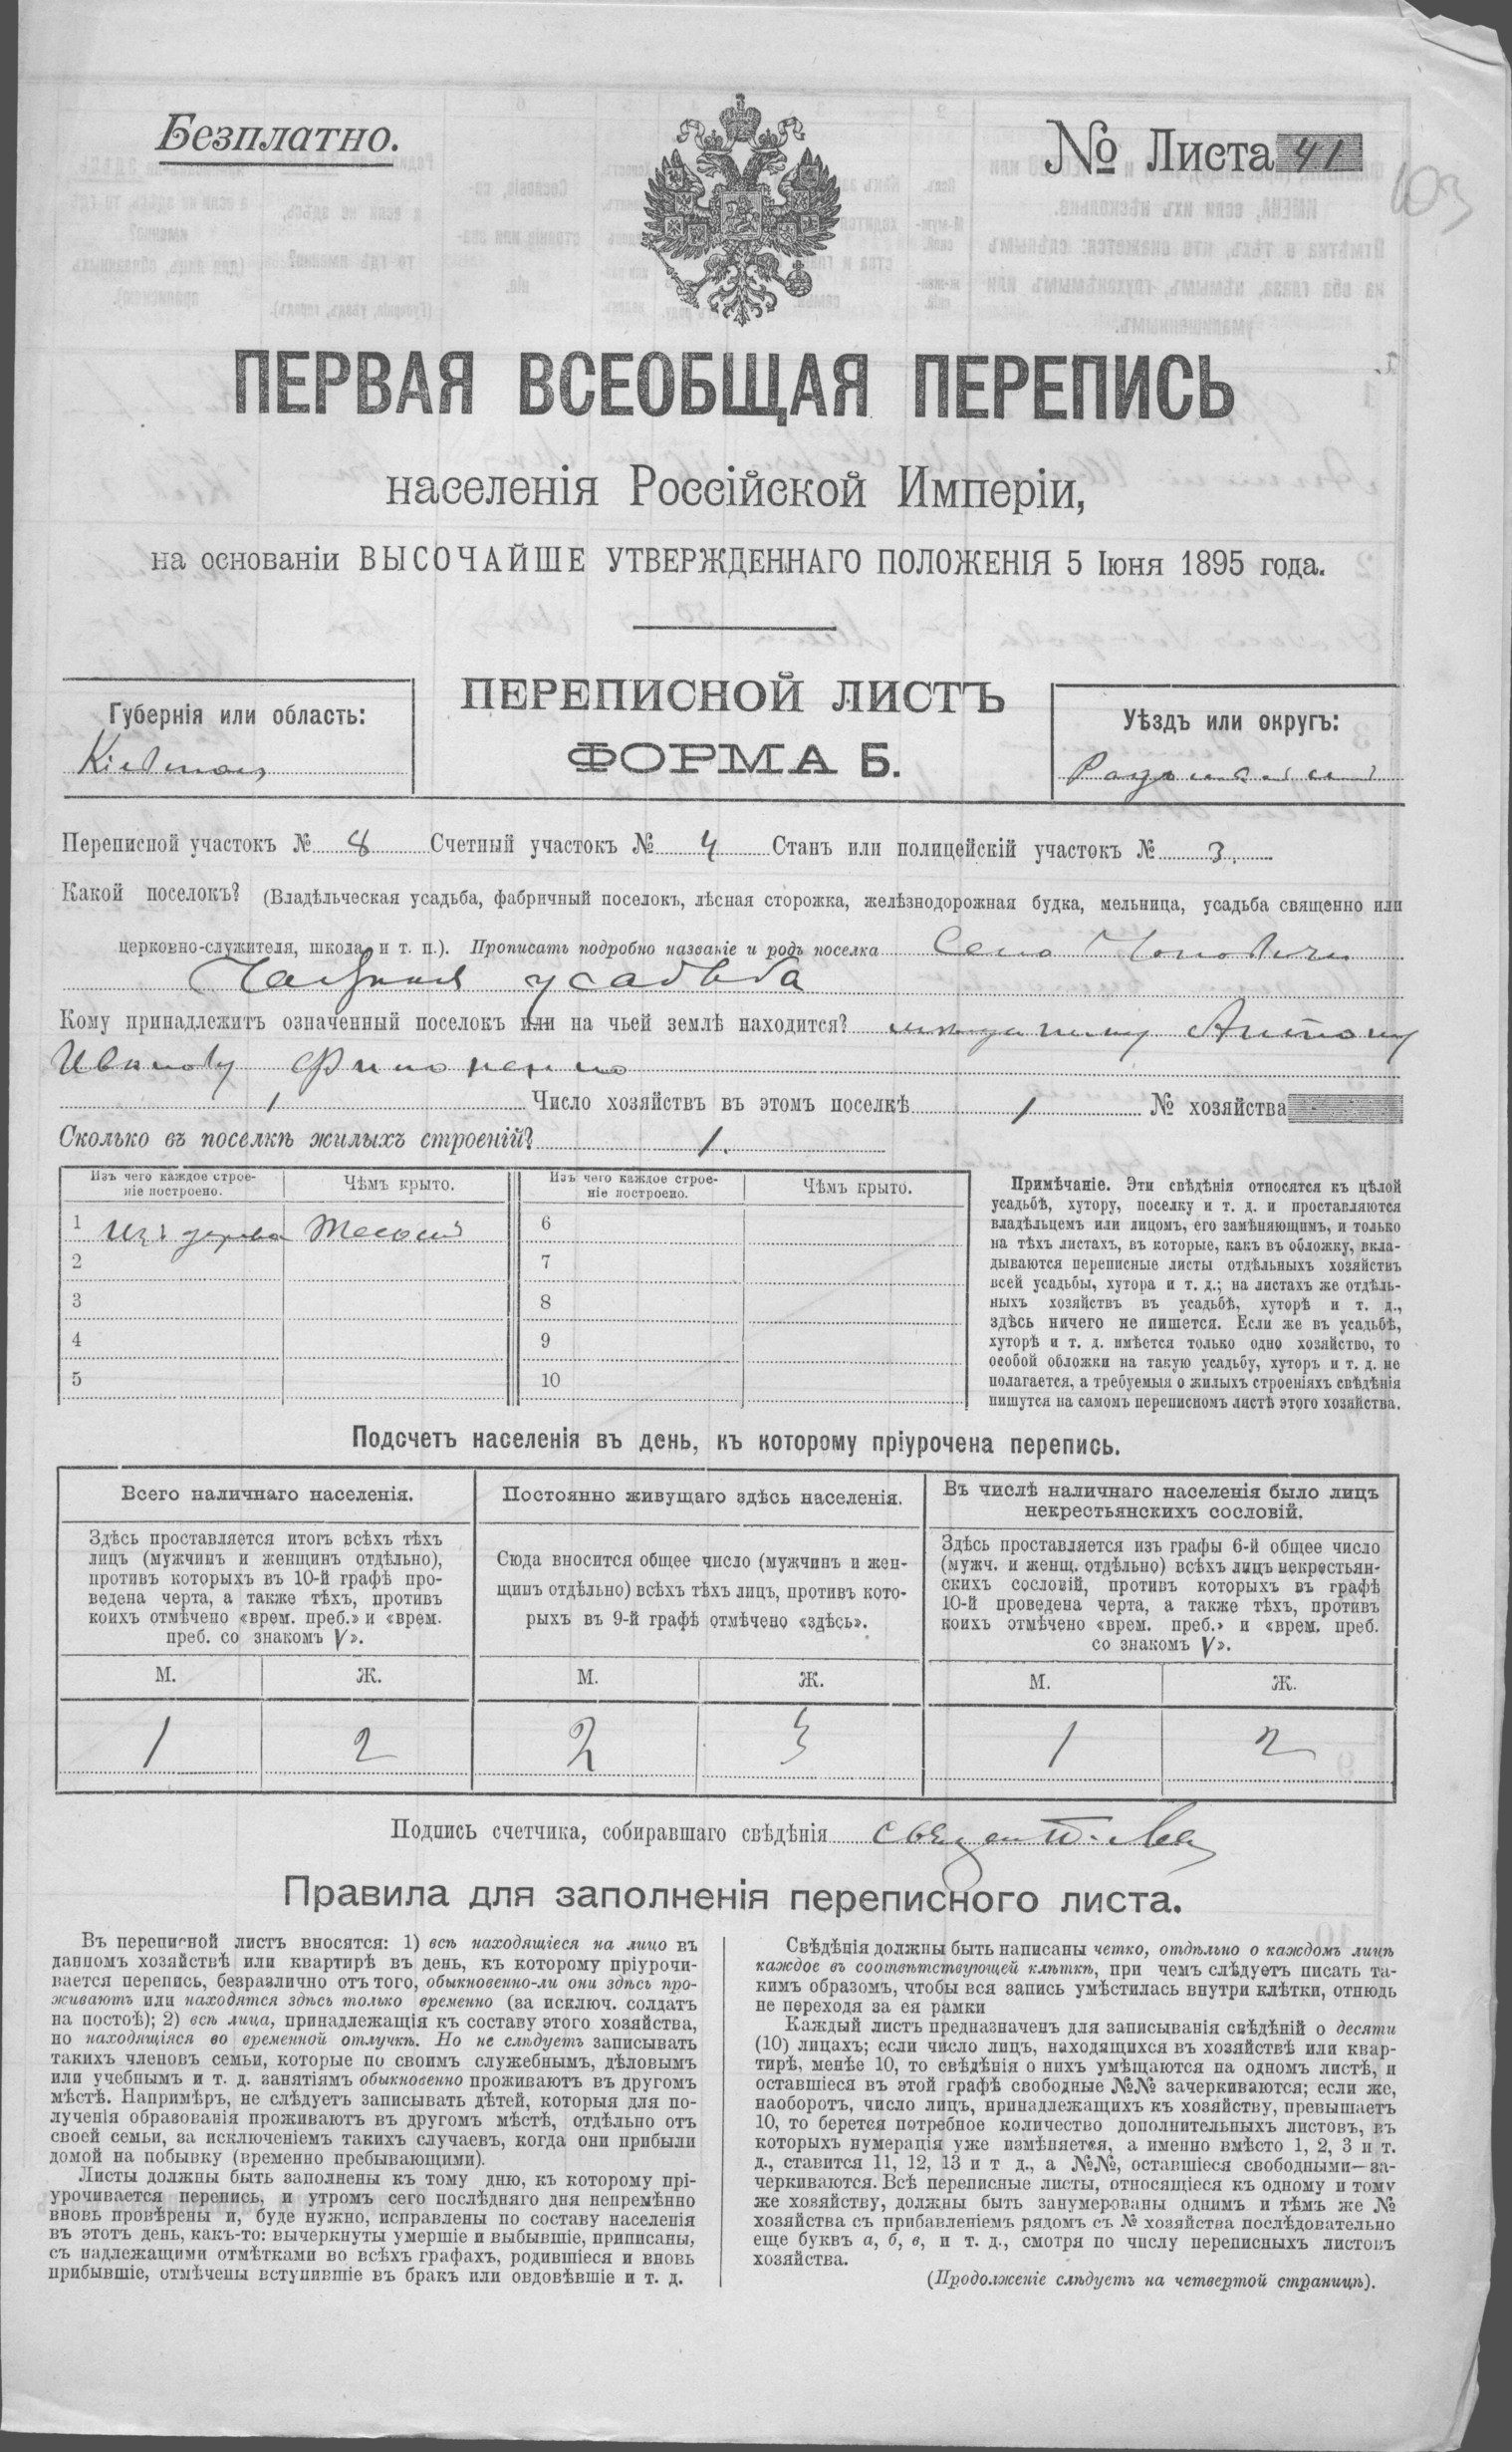 Безплатно.
№ Листа 41
103
ПЕРВАЯ ВСЕОБЩАЯ ПЕРЕПИСЬ
населенія Россійской Имперіи,
на основаніи ВЫСОЧАЙШЕ УТВЕРЖДЕННАГО ПОЛОЖЕНІЯ 5 Іюня 1895 года.
ПЕРЕПИСНОЙ ЛИСТЪ
ФОРМА Б.
Губернія или область:
Кіевская
Уѣздъ или округъ:
Радомысльскій
Переписной участокъ № 8 Счетный участокъ № 4 Станъ или полицейскій участокъ № 3.
Какой поселокъ? (Владѣльческая усадьба, фабричный поселокъ, лѣсная сторожка, желѣзнодорожная будка, мельница, усадьба священно или
церковно-служителя, школа и т. п.). Прописать подробно названіе и родъ поселка Село
усадьба
Кому принадлежитъ означенный поселокъ или на чьей землѣ находится? мѣщанину Антону
Иванову
1 Число хозяйствъ въ этомъ поселкѣ 1 № хозяйства
Сколько въ поселкѣ жилыхъ строеній? 1.
Изъ чего каждое строе-
ніе построено.
Чѣмъ крыто.
Изъ чего каждое строе-
ніе построено.
Чѣмъ крыто.
1 Изъ дерева
6
2 7
3 8
4 9
5 10
Примѣчаніе. Эти свѣдѣнія относятся къ цѣлой
усадьбѣ, хутору, поселку и т. д. и проставляются
владѣльцемъ или лицомъ, его замѣняющимъ, и только
на тѣхъ листахъ, въ которые, какъ въ обложку, вкла-
дываются переписные листы отдѣльныхъ хозяйствъ
всей усадьбы, хутора и т. д.; на листахъ же отдѣль-
ныхъ хозяйствъ въ усадьбѣ, хуторѣ и т. д.,
здѣсь ничего не пишется. Если же въ усадьбѣ,
хуторѣ и т. д. имѣется только одно хозяйство, то
особой обложки на такую усадьбу, хуторъ и т. д. не
полагается, а требуемыя о жилыхъ строеніяхъ свѣдѣнія
пишутся на самомъ переписномъ листѣ этого хозяйства.
Подсчетъ населенія въ день, къ которому пріурочена перепись.
Всего наличнаго населенія.
Здѣсь проставляется итогъ всѣхъ тѣхъ
лицъ (мужчинъ и женщинъ отдѣльно),
противъ которыхъ въ 10-й графѣ про-
ведена черта, а также тѣхъ, противъ
коихъ отмѣчено «врем. преб.» и «врем.
преб. со знакомъ V».
Постоянно живущаго здѣсь населенія.
Сюда вносится общее число (мужчинъ и жен-
щинъ отдѣльно) всѣхъ тѣхъ лицъ, противъ кото-
рыхъ въ 9-й графѣ отмѣчено «здѣсь».
Въ числѣ наличнаго населенія было лицъ
некрестьянскихъ сословій.
Здѣсь проставляется изъ графы 6-й общее число
(мужч. и женщ. отдѣльно) всѣхъ лицъ некрестьян-
скихъ сословій, противъ которыхъ въ графѣ
10-й проведена черта, а также тѣхъ, противъ
коихъ отмѣчено «врем. преб.» и «врем. преб.
со знакомъ V».
М. Ж. М. Ж. М. Ж.
1 2 2 3 1 2
Подпись счетчика, собиравшаго свѣдѣнія
Правила для заполненія переписного листа.
Въ переписной листъ вносятся: 1) всѣ находящіеся на лицо въ
данномъ хозяйствѣ или квартирѣ въ день, къ которому пріурочи-
вается перепись, безразлично отъ того, обыкновенно-ли они здѣсь про-
живаютъ или находятся здѣсь только временно (за исключ. солдатъ
на постоѣ); 2) всѣ лица, принадлежащія къ составу этого хозяйства,
но находящіяся во временной отлучкѣ. Но не слѣдуетъ записывать
такихъ членовъ семьи, которые по своимъ служебнымъ, дѣловымъ
или учебнымъ и т. д. занятіямъ обыкновенно проживаютъ въ другомъ
мѣстѣ. Напримѣръ, не слѣдуетъ записывать дѣтей, которыя для по-
лученія образованія проживаютъ въ другомъ мѣстѣ, отдѣльно отъ
своей семьи, за исключеніемъ такихъ случаевъ, когда они прибыли
домой на побывку (временно пребывающими).
Листы должны быть заполнены къ тому дню, къ которому прі-
урочивается перепись, и утромъ сего послѣдняго дня непремѣнно
вновь провѣрены и, буде нужно, исправлены по составу населенія
въ этотъ день, какъ-то: вычеркнуты умершіе и выбывшіе, приписаны,
съ надлежащими отмѣтками во всѣхъ графахъ, родившіеся и вновь
прибывшіе, отмѣчены вступившіе въ бракъ или овдовѣвшіе и т. д.
Свѣдѣнія должны быть написаны четко, отдѣльно о каждомъ лицѣ
каждое въ соотвѣтствующей клѣткѣ, при чемъ слѣдуетъ писать та-
кимъ образомъ, чтобы вся запись умѣстилась внутри клѣтки, отнюдь
не переходя за ея рамки
Каждый листъ предназначенъ для записыванія свѣдѣній о десяти
(10) лицахъ; если число лицъ, находящихся въ хозяйствѣ или квар-
тирѣ, менѣе 10, то свѣдѣнія о нихъ умѣщаются на одномъ листѣ, и
оставшіеся въ этой графѣ свободные №№ зачеркиваются; если же,
наоборотъ, число лицъ, принадлежащихъ къ хозяйству, превышаетъ
10, то берется потребное количество дополнительныхъ листовъ, въ
которыхъ нумерація уже измѣняется, а именно вмѣсто 1, 2, 3 и т.
д., ставится 11, 12, 13 и т д., а №№, оставшіеся свободными—за-
черкиваются. Всѣ переписные листы, относящіеся къ одному и тому
же хозяйству, должны быть занумерованы однимъ и тѣмъ же №
хозяйства съ прибавленіемъ рядомъ съ № хозяйства послѣдовательно
еще буквъ а, б, в, и т. д., смотря по числу переписныхъ листовъ
хозяйства.
(Продолженіе слѣдуетъ на четвертой страницѣ).